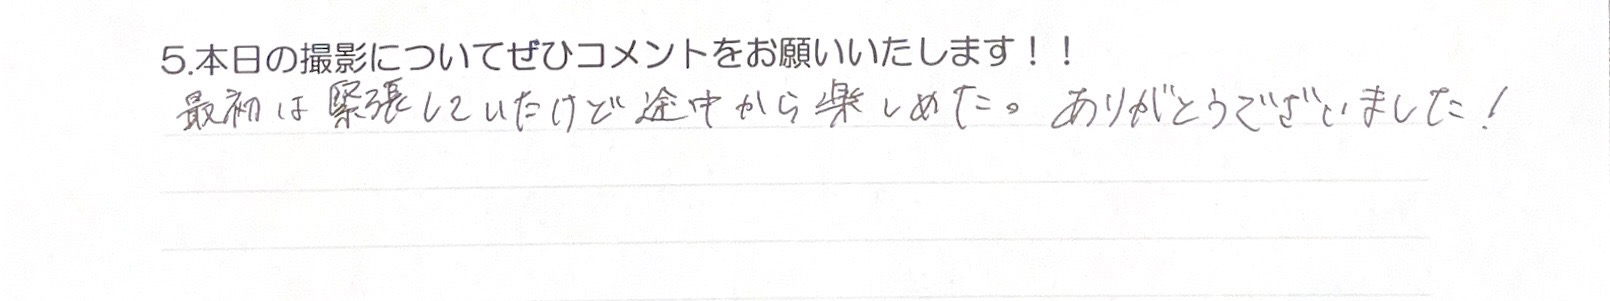 5.本日の撮影についてぜひコメントをお願いいたします！！
最初は緊張していたけど途中から楽しめた。ありがとうございました！